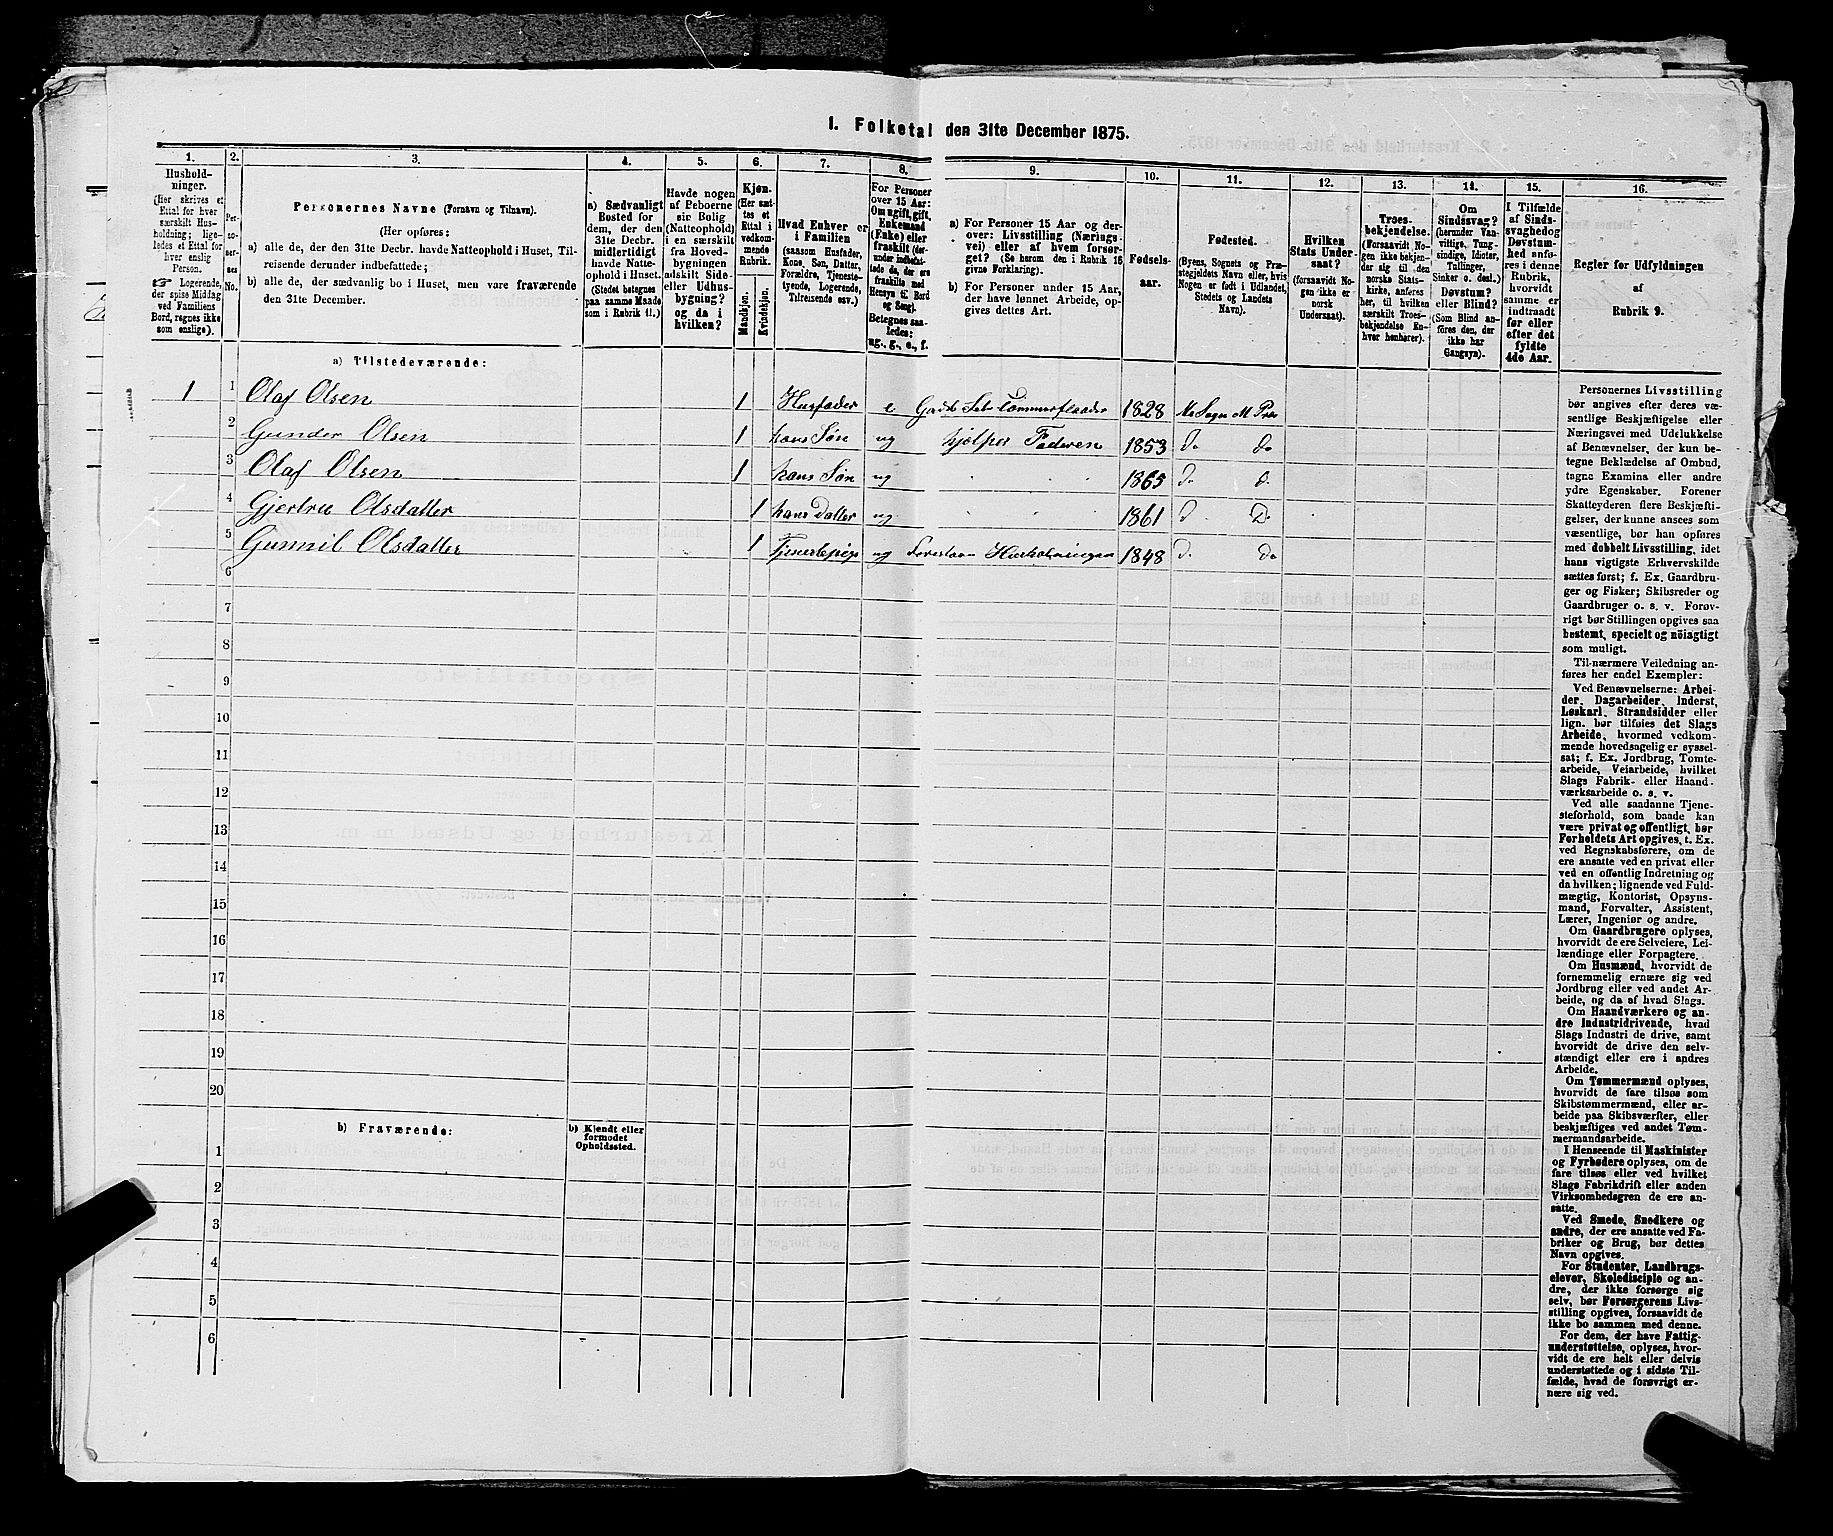 1. Folketal den 31te December 1875.
1. 2. 3. 4. 5. 6. 7. 8. 9. 10. 11. 12. 13. 14. 15. 16.
Hushold-
ninger.
(Her skrives et
Ettal for hver
særskilt Hus-
holdning; lige-
ledes et Ettal for
hver enslig
Person.
☞ Logerende,
der spise Middag
ved Familiens
Bord, regnes ikke
som enslige).
Per-
so-
ner-
nes
No.
Personernes Navne (Fornavn og Tilnavn).
(Her opføres:
a) alle de, der den 31te Decbr. havde Natteophold i Huset, Til-
reisende derunder indbefattede;
b) alle de, der sædvanlig bo i Huset, men vare fraværende
den 31te December.
a) Sædvanligt
Bosted for
dem, der den
31te Decbr.
midlertidigt
havde Natte-
ophold i Huset.
(Stedet betegnes
paa samme Maade
som i Rubrik 11.)
Havde nogen
af Beboerne
sin Bolig
(Natteophold)
i en særskilt
fra Hoved-
bygningen
adskilt Side-
eller Udhus-
bygning?
og da i
hvilken?
Kjøn.
(Her sæt-
tes et
Ettal i
vedkom-
mende
Rubrik.
Mandkjøn.
Kvindekjøn.
Hvad Enhver er
i Familien
(saasom Husfader,
Kone, Søn, Datter,
Forældre, Tjeneste-
tyende, Logerende,
Tilreisende osv.)
For Personer
over 15 Aar:
Om ugift, gift,
Enkemand
(Enke) eller
fraskilt
Betegnes saa-
ledes:
ug., g., e., f.
a) For Personer 15 Aar og der-
over: Livsstilling (Nærings-
vei) eller af hvem forsør-
get? (Se herom den i Rubrik 16
givne Forklaring).
b) For Personer under 15 Aar,
der have lønnet Arbeide, op-
gives dettes Art.
Fødsels-
aar.
Fødested.
(Byens, Sognets og Præ-
stegjeldets Navn eller, hvis
Nogen er født i Udlandet,
Stedets og Landets
Navn).
Hvilken
Stats Under-
saat?
(forsaavidt No-
gen ikke er
norsk
Undersaat).
Troes-
bekjendelse.
(Forsaavidt No-
gen ikke bekjen-
der sig til den
norske Stats-
kirke, anføres
her, til hvilken
særskilt Troes-
bekjendelse En-
hver henhører).
Om
Sindssvag?
(herunder Van-
vittige, Tung-
sindige, Idioter,
Tullinger,
Sinker o. desl.)
Døvstum?
eller Blind?
(Som Blind an-
føres den, der
ikke har
Gangsyn).
I Tilfælde
af Sinds-
svaghed og
Døvstum-
hed anfø-
res i denne
Rubrik,
hvorvidt
samme er
indtraadt
før eller
efter det
fyldte
4de Aar.
Regler for Udfyldningen
af
Rubrik 9.
a) Tilstedeværende:
1 1 Olaf Olsen 1 Husfader e Tømmerflaader 1828
2 Gunder Olsen 1 hans Søn ug hjælper Faderen 1853 Do Do
3 Olaf Olsen 1 hans Søn ug 1865 D. D.
4 Gjertru Olsdatter 1 hans Datter ug 1861 D D.
5 Gunnil Olsdatter 1 ug Forestaar Husholdningen 1848 D. Do
6
7
8
9
10
11
12
13
14
15
16
17
18
19
20
b) Fraværende:
b) Kjendt eller
formodet
Opholdssted.
1
2
3
4
5
6
Personernes Livsstilling
bør angives efter deres væ-
sentlige Beskjæftigelse eller
Næringsvei med Udelukkelse
af Benævnelser, der kun be-
tegne Beklædelse af Ombud,
tagne Examina eller andre
ydre Egenskaber. Forener
Skatteyderen flere Beskjæfti-
gelser, der kunne ansees som
væsentlige, bør han opføres
med dobbelt Livsstilling, idet
hans vigtigste Erhvervskilde
sættes først; f. Ex. Gaardbru-
ger og Fisker; Skibsreder og
Gaardbruger o. s. v. Forøv-
rigt bør Stillingen opgives saa
bestemt, specielt og nøiagtigt
som muligt.
Til nærmere Veiledning an-
føres her endel Exempler:
Ved Benævnelserne: Arbei-
der, Dagarbeider, Inderst,
Løskarl, Strandsidder eller
lign. bør tilføies det Slags
Arbeide, hvormed vedkom-
mende hovedsagelig er syssel-
sat; f. Ex. Jordbrug, Tomte-
arbeide, Veiarbeide, hvilket
Slags Fabrik- eller Haand-
værksarbeide o. s. v.
Ved alle saadanne Tjene-
steforhold, som baade kan
være privat og offentligt, bør
Forholdets Art opgives, t. Ex.
ved Regnskabsførere, om de
ere ansatte ved en privat eller
ved en offentlig Indretning og
da hvilken; lignende ved Fuld-
mægtig, Kontorist, Opsyns-
mand, Forvalter, Assistent,
Lærer, Ingeniør og andre.
Om Gaardbrugere oplyses,
hvorvidt de ere Selveiere, Lei-
lændinge eller Forpagtere.
Om Husmænd, hvorvidt de
fornemmelig ernære sig ved
Jordbrug eller ved andet Ar-
beide, og da af hvad Slags.
Om Haandværkere og an-
dre Industridrivende, hvad
Slags Industri de drive, samt
hvorvidt de drive den selv-
stændigt eller ere i andres
Arbeide.
Om Tømmermænd oplyses,
hvorvidt de fare tilsøs som
Skibstømmermænd, eller ar-
beide paa Skibsværfter, eller
beskjæftiges ved andet Tøm-
mermandsarbeide.
I Henseende til Maskinister
og Fyrbødere oplyses, om de
fare tilsøs eller ved hvilket
Slags Fabrikdrift eller anden
Virksomhedsgren de ere an-
satte.
Ved Smede, Snedkere og
andre, der ere ansatte ved Fa-
briker og Brug, bør dettes
Navn opgives.
For Studenter, Landbrugs-
elever, Skoledisciple og an-
dre, der ikke forsørge sig
selv, bør Forsørgerens Livs-
stilling opgives, forsaavidt de
ikke bo sammen med denne.
For dem, der have Fattig-
understøttelse, oplyses, hvor-
vidt de ere helt eller delvis
understøttede og i sidste Til-
fælde, hvad de forøvrigt er-
nære sig ved.